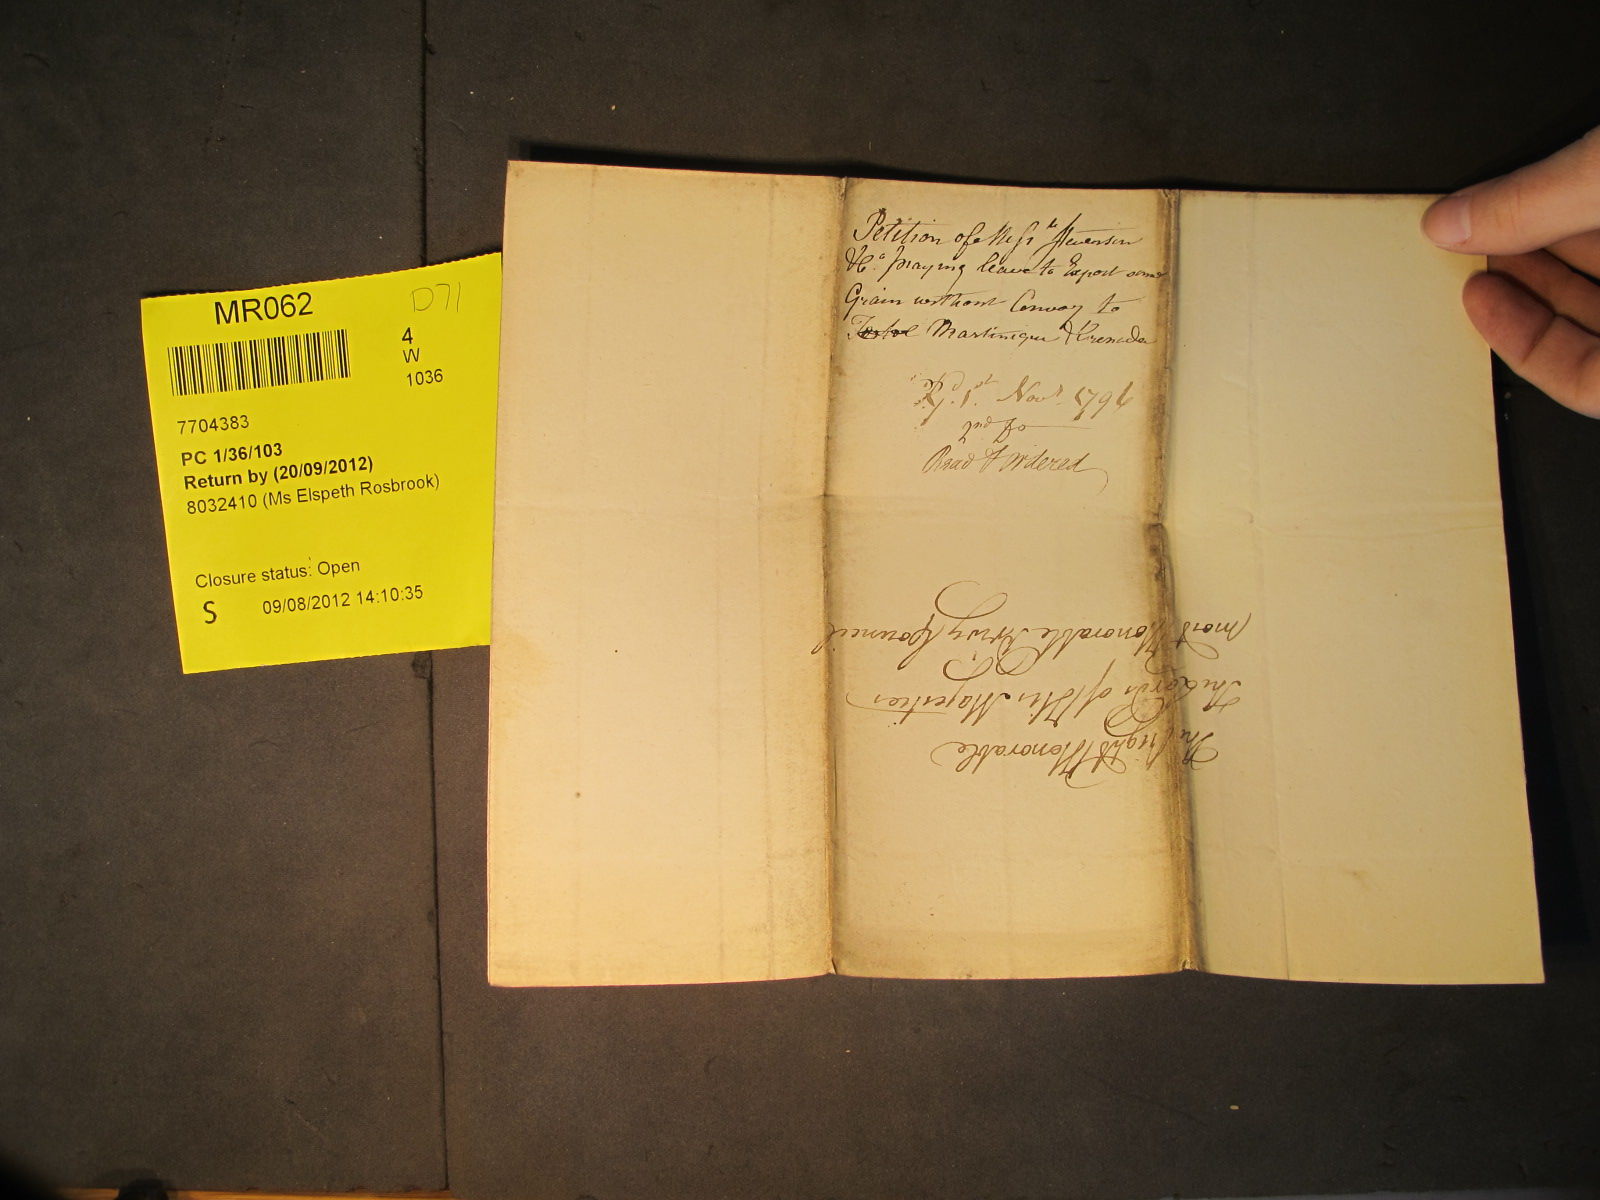 MR062
D71
4
W
1036
7704383
PC 1/36/103
Return by (20/09/2012)
8032410 (Ms Elspeth Rosbrook)
Closure status: Open
S 09/08/2012 14:10:35
Petition of Messrs Stevenson
& Co. praying leave to Export some
Grain without Convoy to
Martinique & Grenada
1st Novr. 1794
2nd Do
Read & Ordered
The Right Honorable
The Lords of His Majesties
most Honorable Privy Council